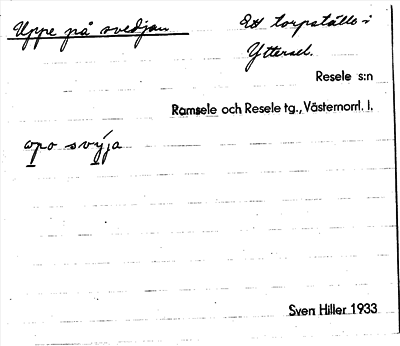 Uppe på svedjan
Ett torpställe i
Yttersel.
Resele s:n
Ramsele och Resele tg., Västernorrl. l.
opo svýja
Sven Hiller 1933